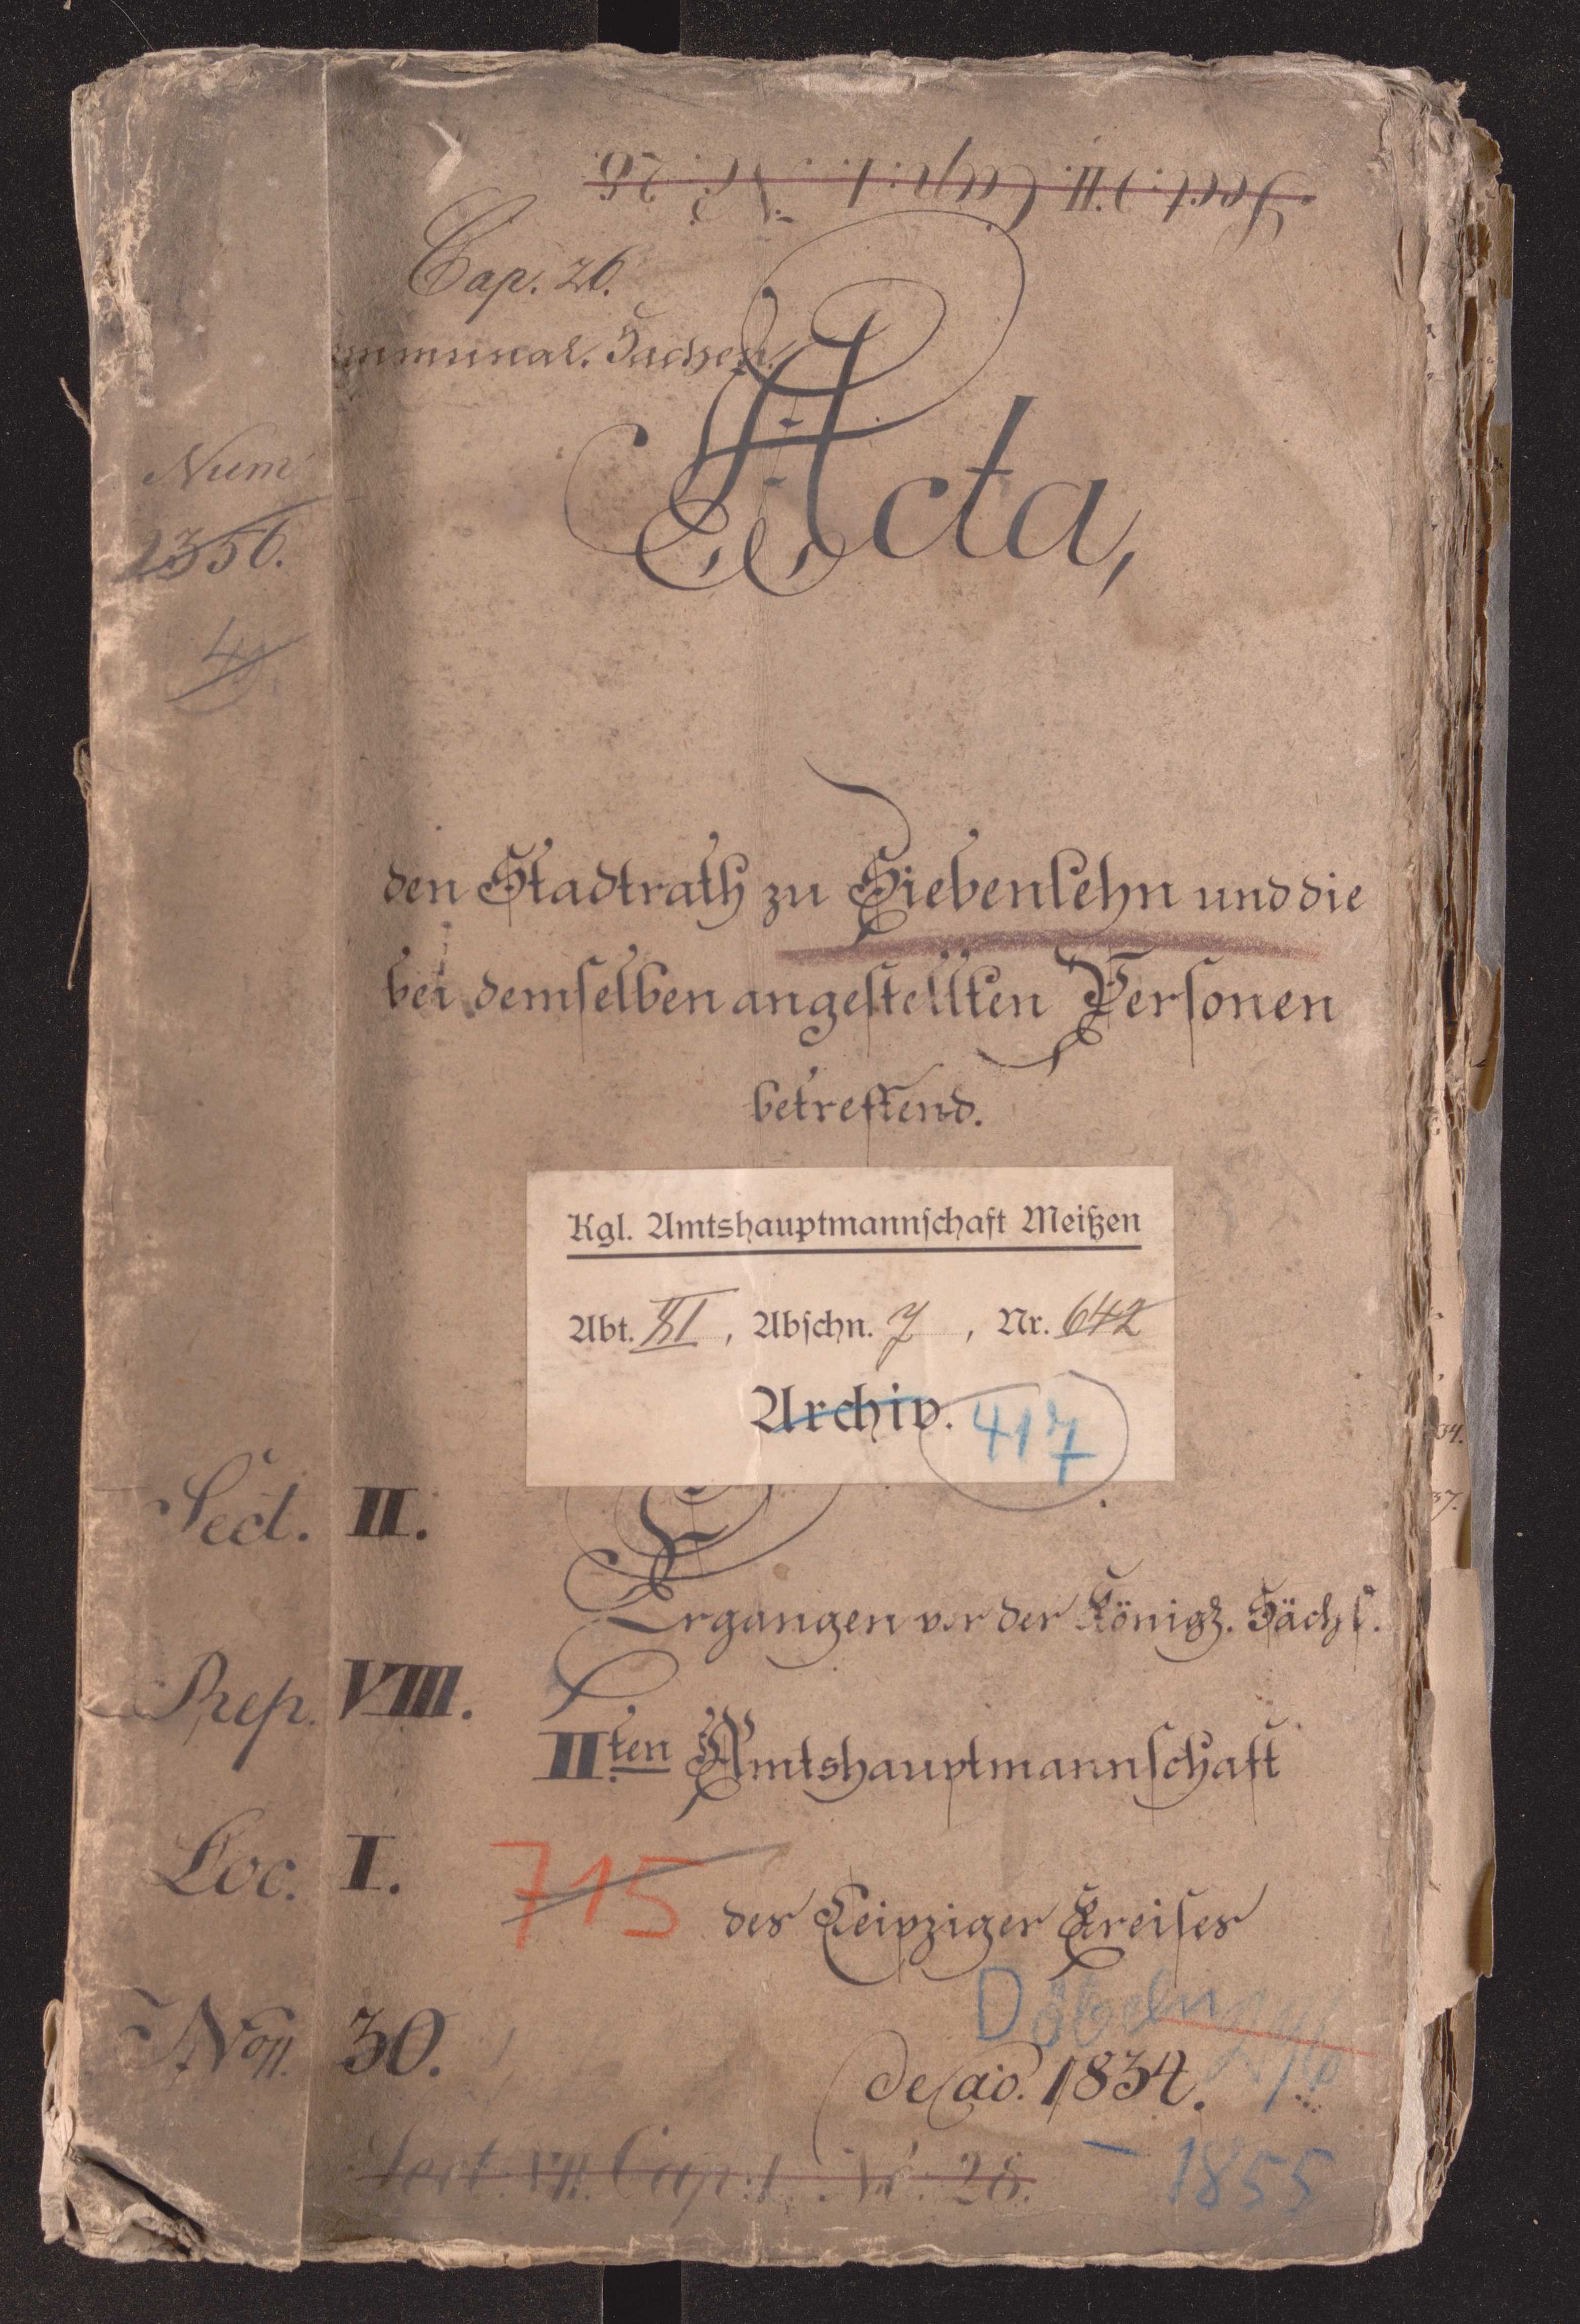 Sect: VII. Cap: 1. No: 28.
Cap. 26.
ommunal. Sachen.
Acta,
Num
2356.
den Stadtrath zu Siebenlehn und die
bei demselben angestellten Personen
betreffend.
Kgl. Amtshauptmannschaft Meißen
Abt. XI, Abschn. 7, Nr. 642
Archiv. 417
Sect. II.
Ergangen vor der Königl. Sächs.
Rep. VIII.
II.ten Amtshauptmannschaft
Loc. I.
715
des Leipziger Kreises
Döbeln
Non. 30.
de ao. 1834.
Sect. VII. Cap: 1 No: 28.
– 1855